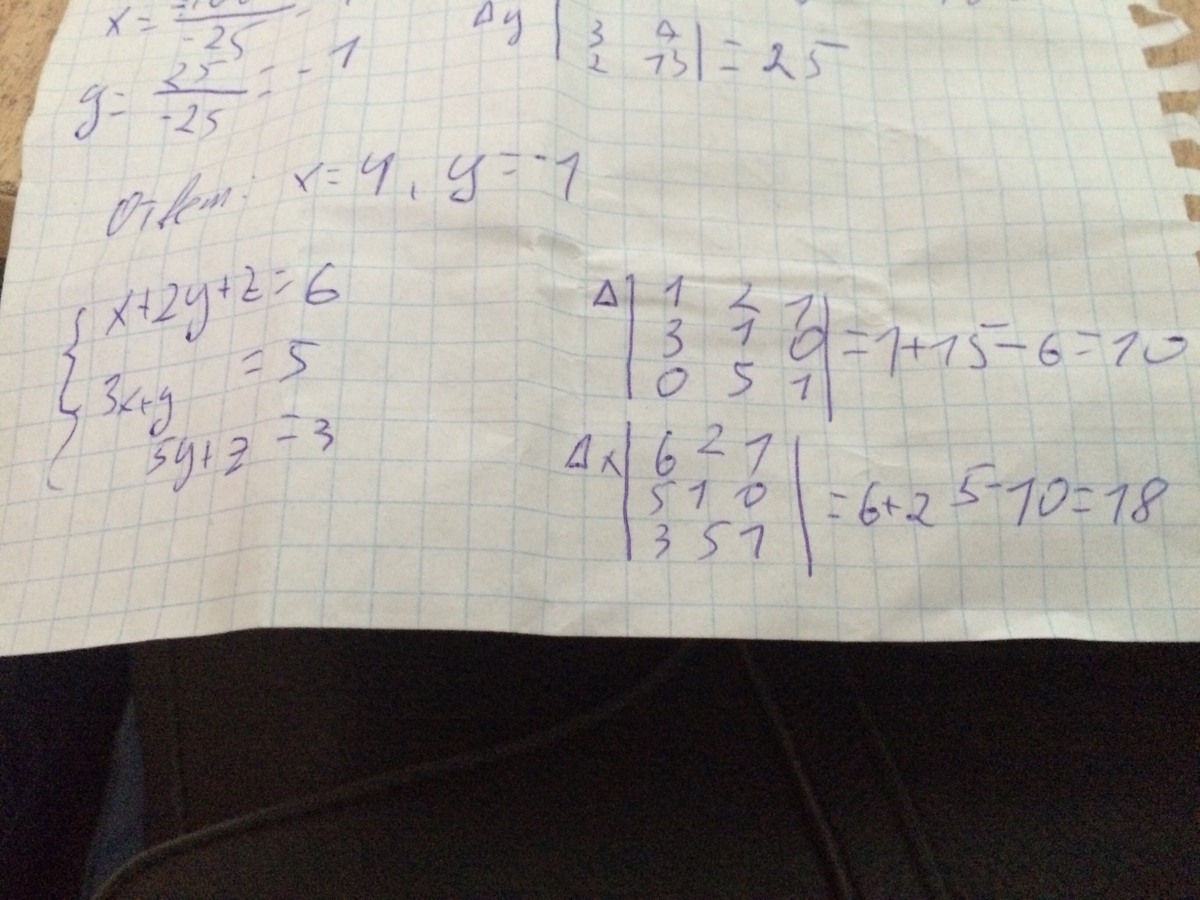 x = /-25
Δy | 3
2 13 | = 25
y = 25/-25 = -1
Ответ: x = 4, y = -1
x+2y+z = 6
3x+y = 5
5y+z = 3
Δ | 1 2 1
3 1 0
0 5 1 | = 1+15-6=10
Δx | 6 2 1
5 1 0
3 5 1 | = 6+25-10=18